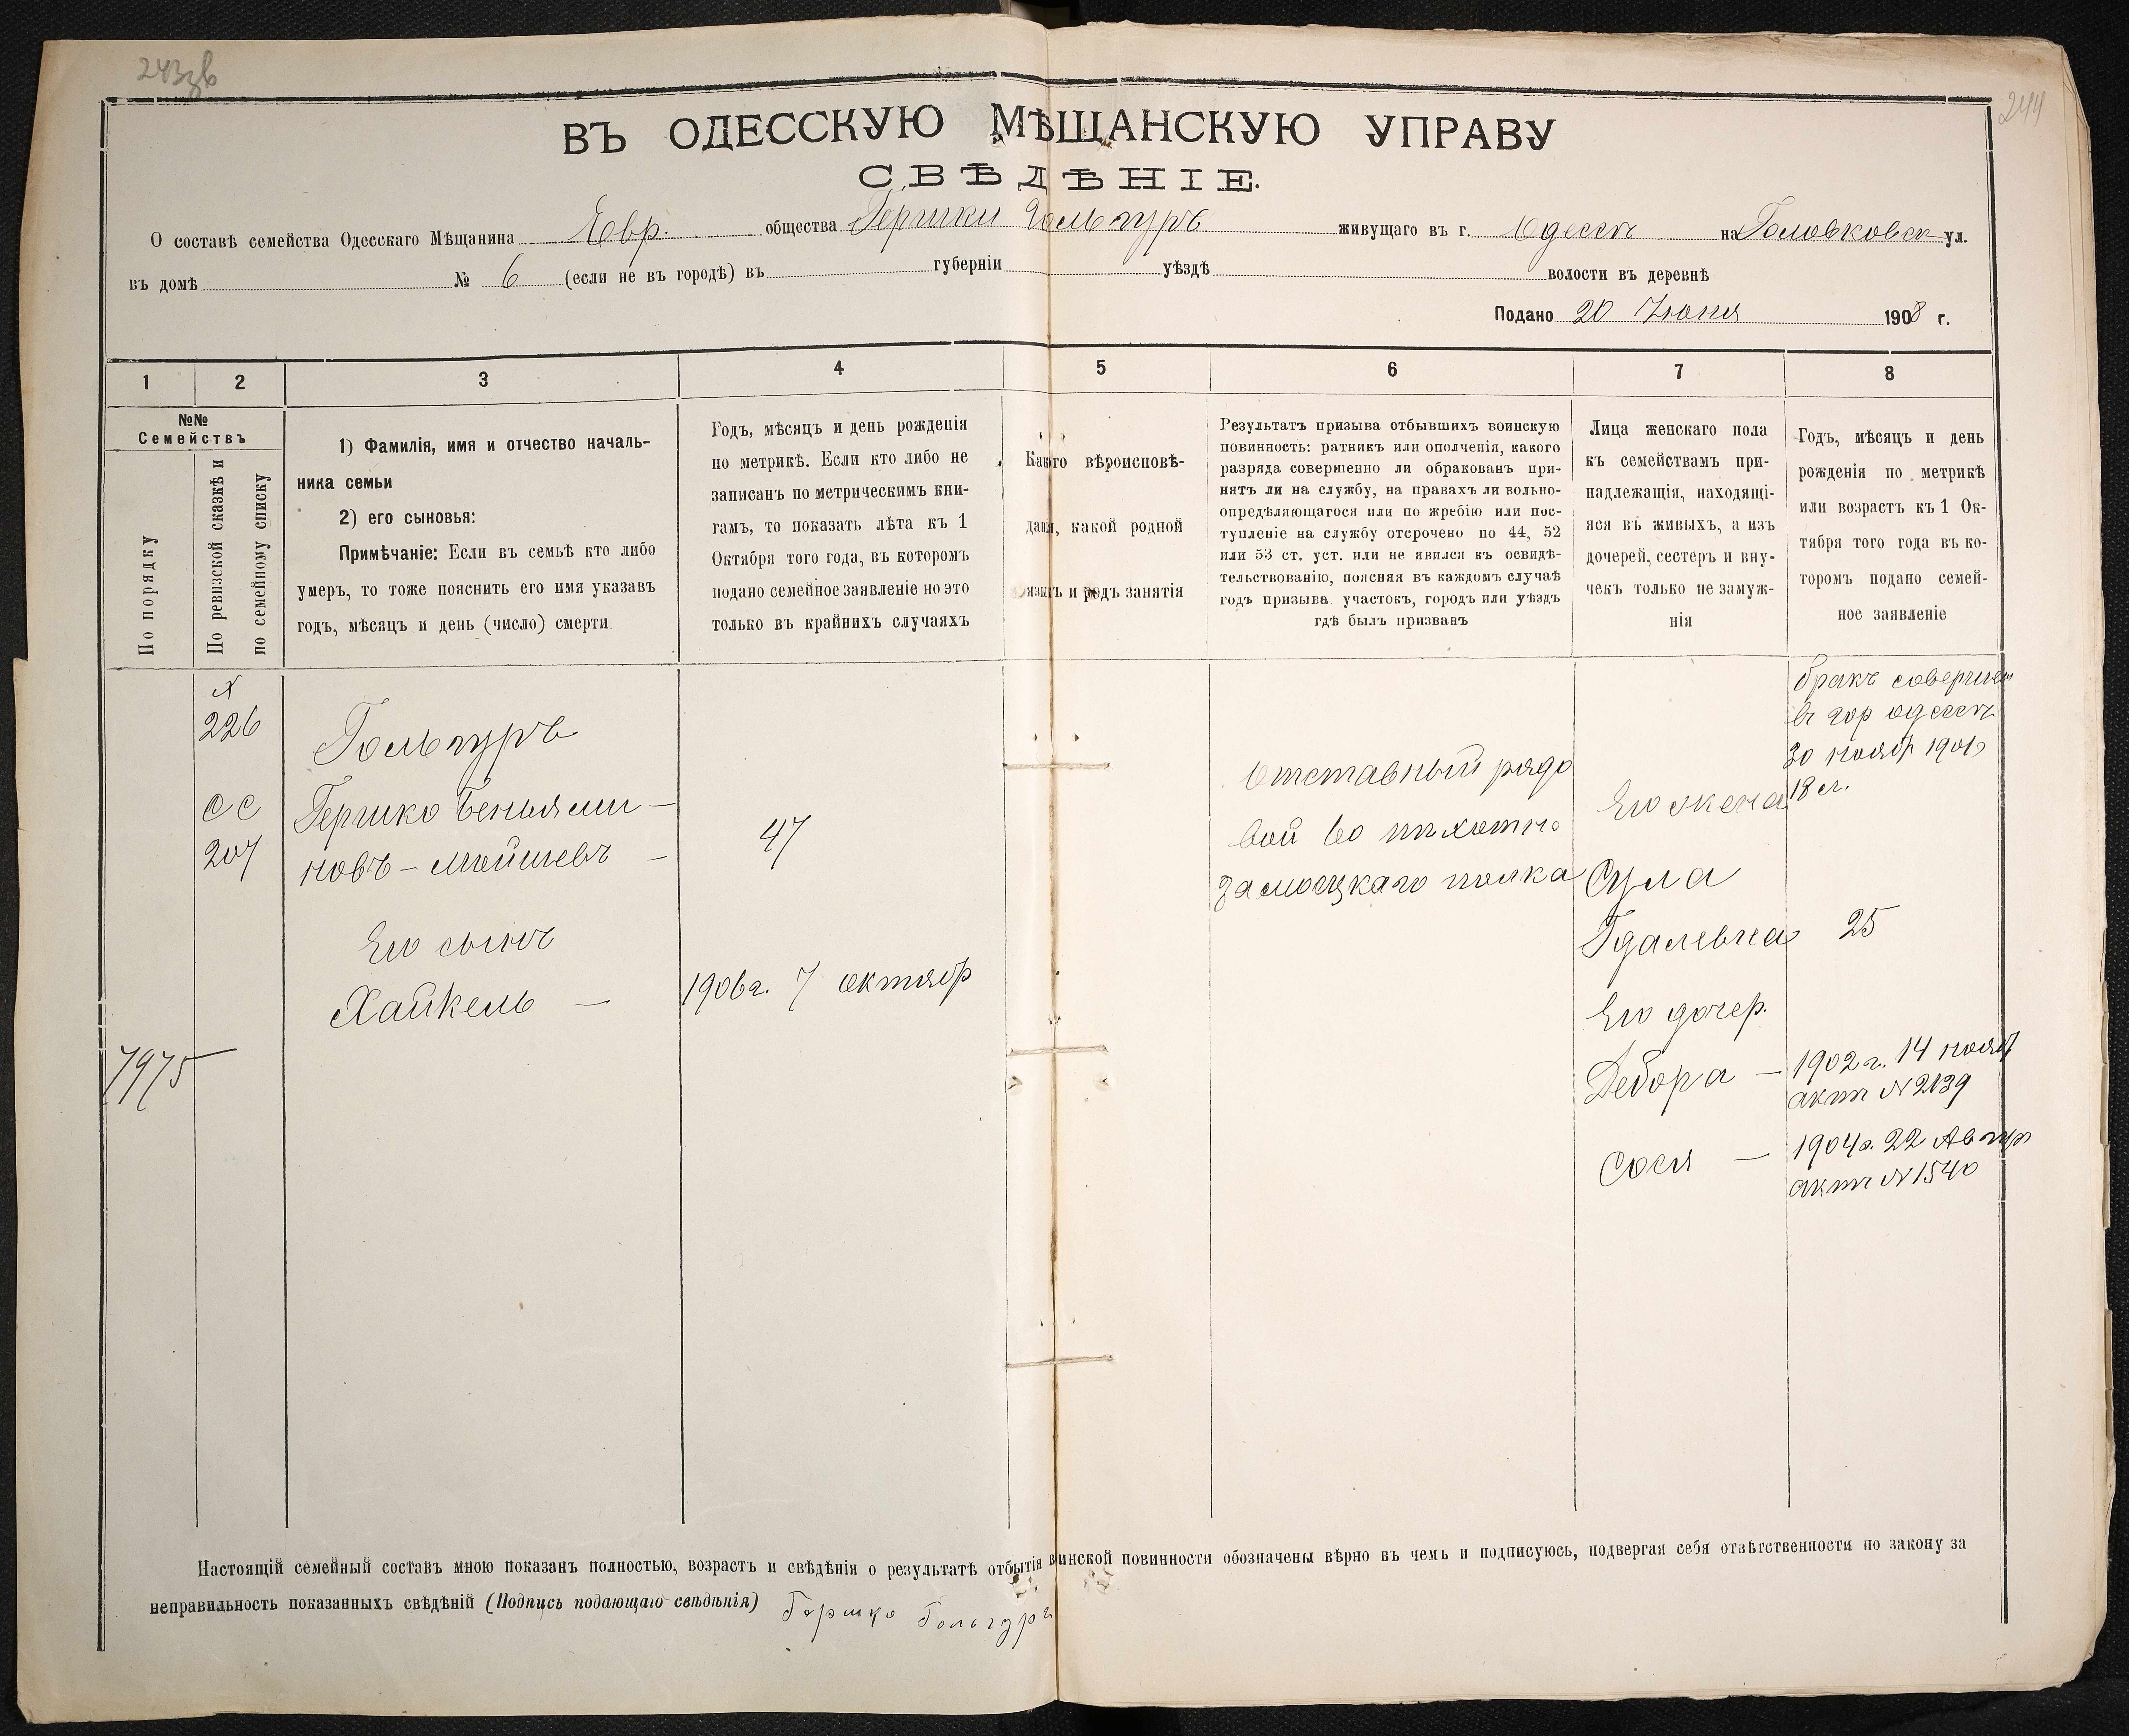 243зв
244
ВЪ ОДЕССКУЮ МѢЩАНСКУЮ УПРАВУ
СВѢДѢНІЕ.
О составѣ семейства Одесскаго Мѣщанина Евр. общества Гершки Гольгуръ живущаго въ г. Одессѣ на Головковск ул.
въ домѣ № 6 (если не въ городѣ) въ губерніи уѣздѣ волости въ деревнѣ
Подано 20 Іюня 1908 г.
1 2 3 4 5 6 7 8
№№
Семействъ
По порядку
По ревизской сказкѣ и
по семейному списку
1) Фамилія, имя и отчество началь-
ника семьи
2) его сыновья:
Примѣчаніе: Если въ семьѣ кто либо
умеръ, то тоже пояснить его имя указавъ
годъ, мѣсяцъ и день (число) смерти.
Годъ, мѣсяцъ и день рожденія
по метрикѣ. Если кто либо не
записанъ по метрическимъ кни-
гамъ, то показать лѣта къ 1
Октября того года, въ которомъ
подано семейное заявленіе но это
только въ крайнихъ случаяхъ
Какого вѣроисповѣ-
данія, какой родной
языкъ и родъ занятія
Результатъ призыва отбывшихъ воинскую
повинность: ратникъ или ополченія, какого
разряда совершенно ли обракованъ при-
нятъ ли на службу, на правахъ ли вольно-
опредѣляющагося или по жребію или пос-
тупленіе на службу отсрочено по 44, 52
или 53 ст. уст. или не явился къ освидѣ-
тельствованію, поясняя въ каждомъ случаѣ
годъ призыва участокъ, городъ или уѣздъ
гдѣ былъ призванъ
Лица женскаго пола
къ семействамъ при-
надлежащія, находящі-
яся въ живыхъ, а изъ
дочерей, сестеръ и вну-
чекъ только не замуж-
нія
Годъ, мѣсяцъ и день
рожденія по метрикѣ
или возрастъ къ 1 Ок-
тября того года въ ко-
торомъ подано семей-
ное заявленіе
N
226
СС
207
7975
Гольгуръ
Гершко Беньями-
новъ-Мойшевъ
47
Его сынъ
Хайкель — 1906г. 7 октябр
Отставный рядо
вой 60 пѣхотнo
Замосцкаго полка
бракъ соверши
въ гор одессѣ
30 ноябр 1901
18 л.
Его жена
Сула
Гдалевна 25
Его дочер.
Дебора — 1902 г. 14 нояб
актъ N 2139
Сося — 1904г. 22 Авгус
актъ N 1540
Настоящій семейный составъ мною показанъ полностью, возрастъ и свѣдѣнія о результатѣ отбытія воинской повинности обозначены вѣрно въ чемъ и подписуюсь, подвергая себя отвѣтственности по закону за
неправильность показанныхъ свѣдѣній (Подпись подающаго свѣдѣнія) Гершко Гольгуръ